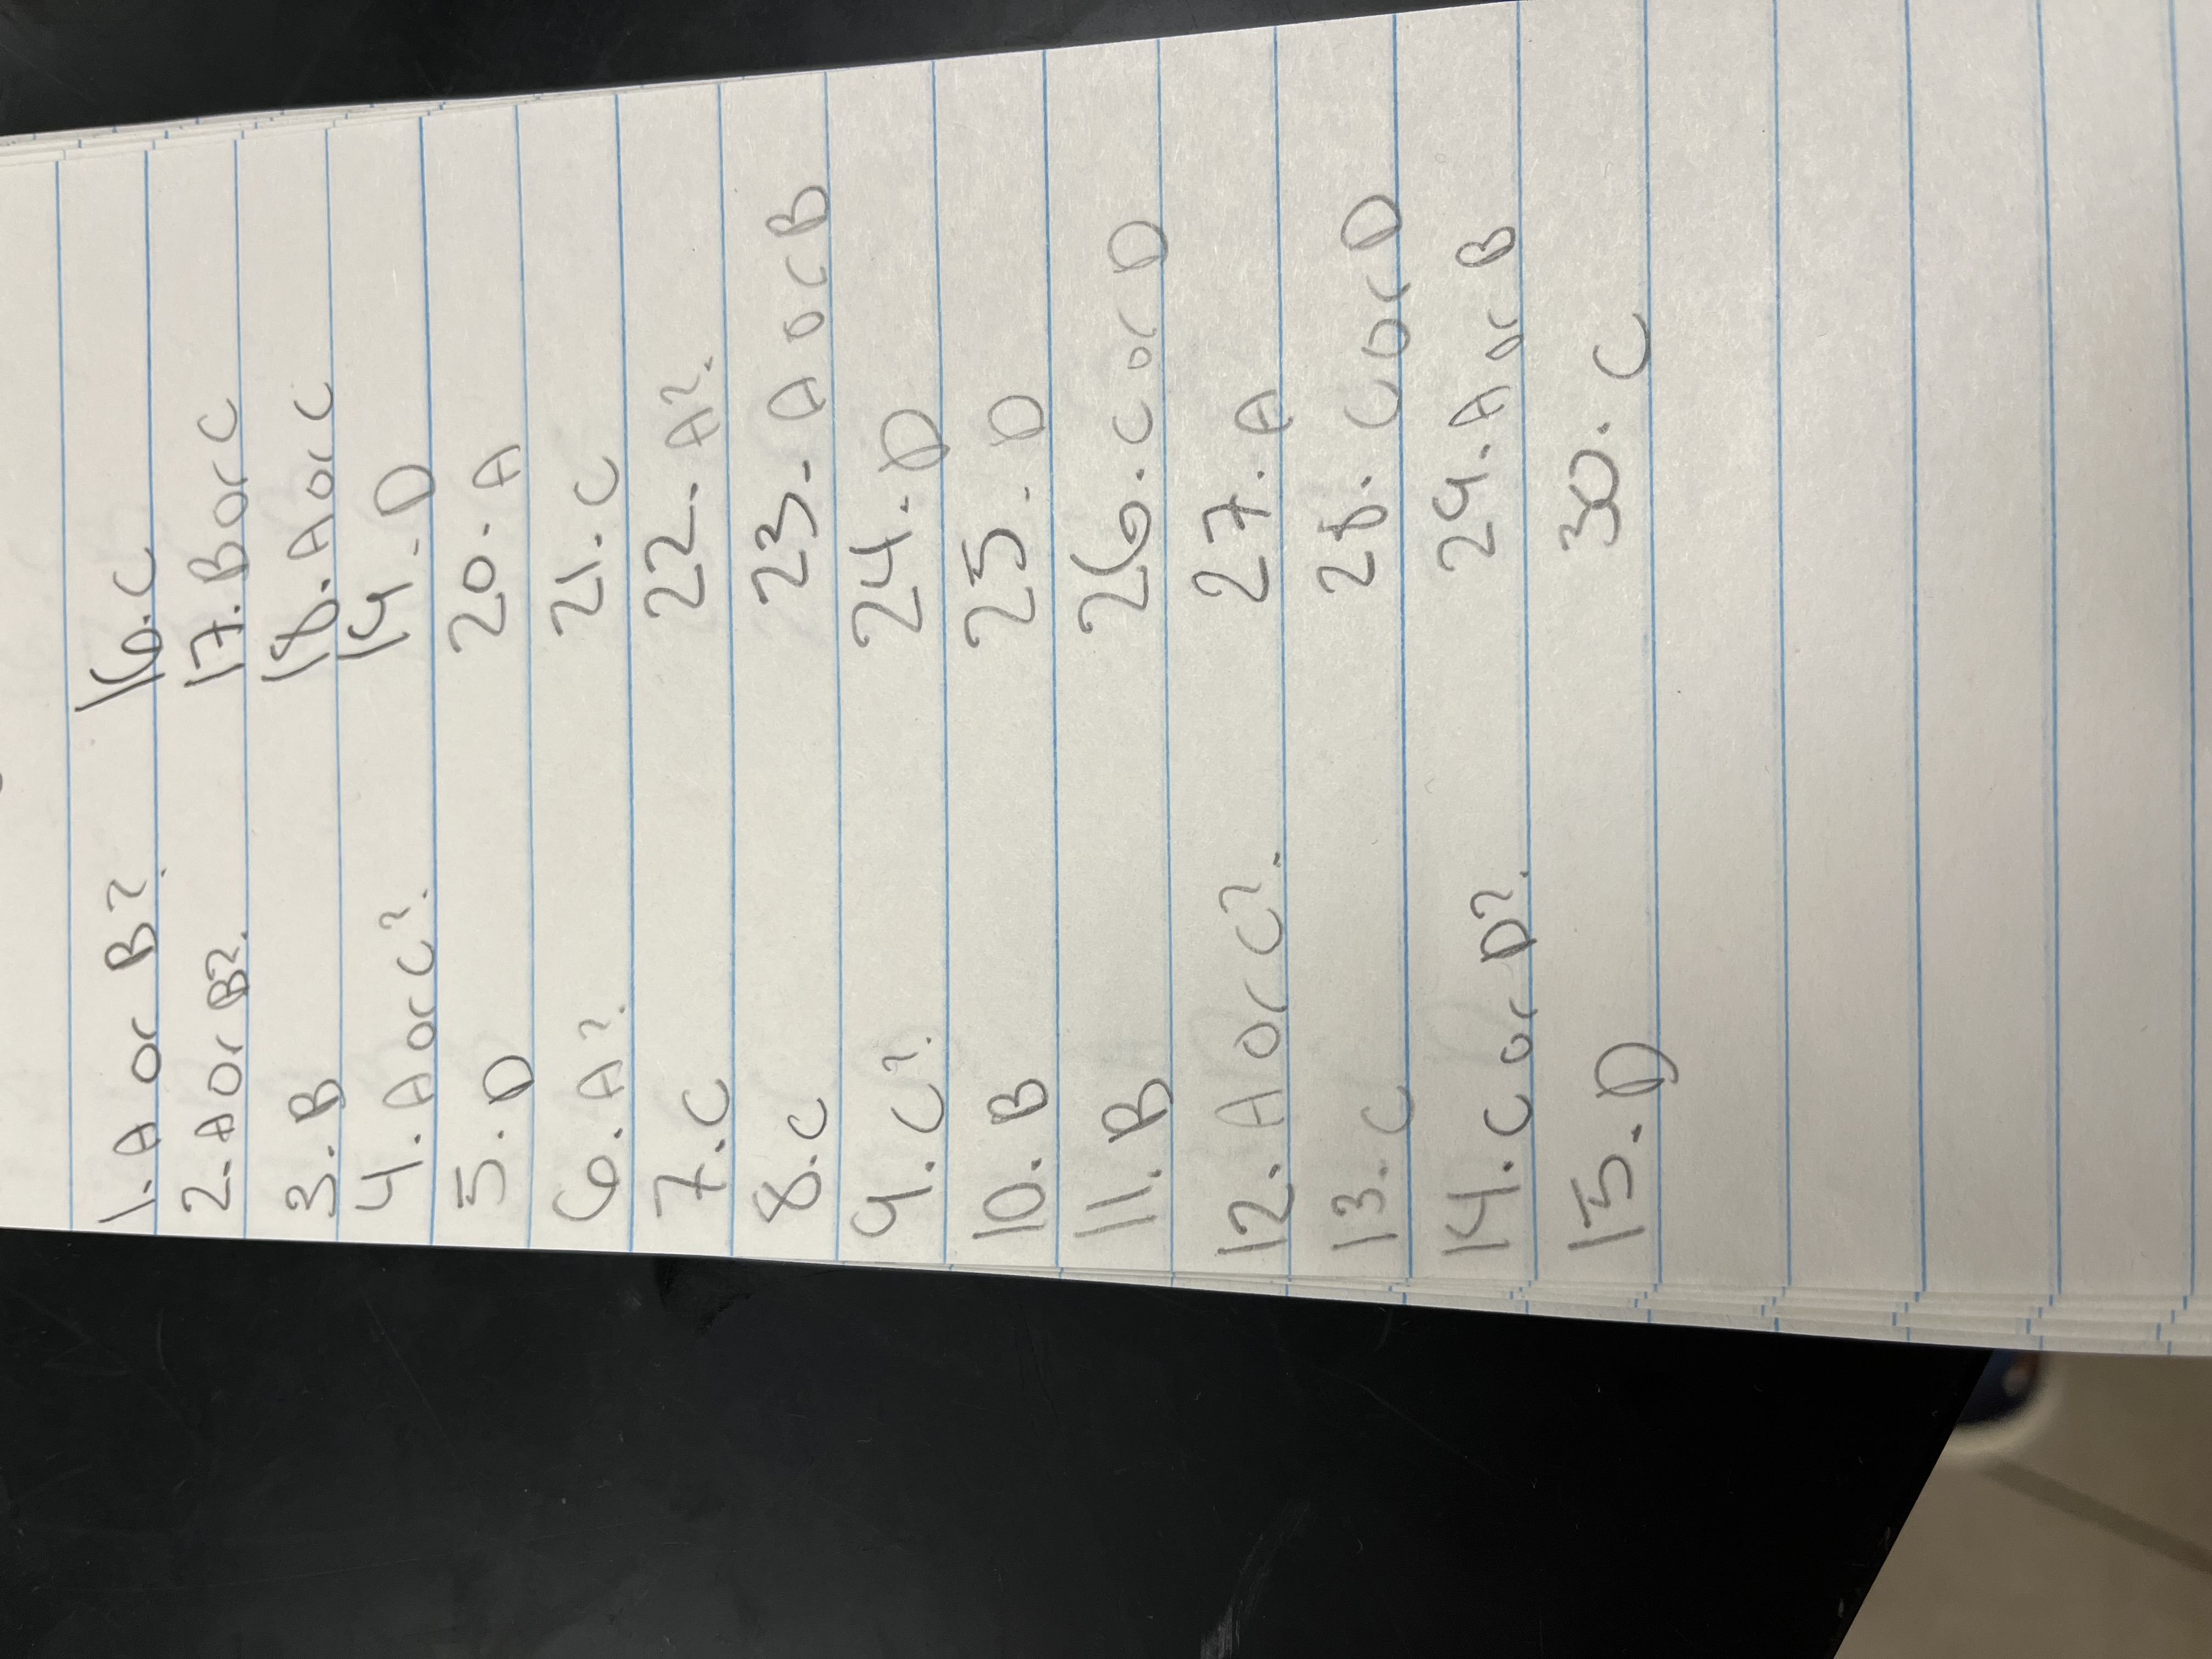 1. A or B?
2. A or B?
3. B
4. A or C?
5. D
6. A?
7. C
8. C
9. C?
10. B
11. B
12. A or C?
13. C
14. C or D?
15. D
16. C
17. B or C
18. A or C
19. D
20. A
21. C
22. A?
23. A or B
24. D
25. D
26. C or D
27. A
28. C or D
29. A or B
30. C